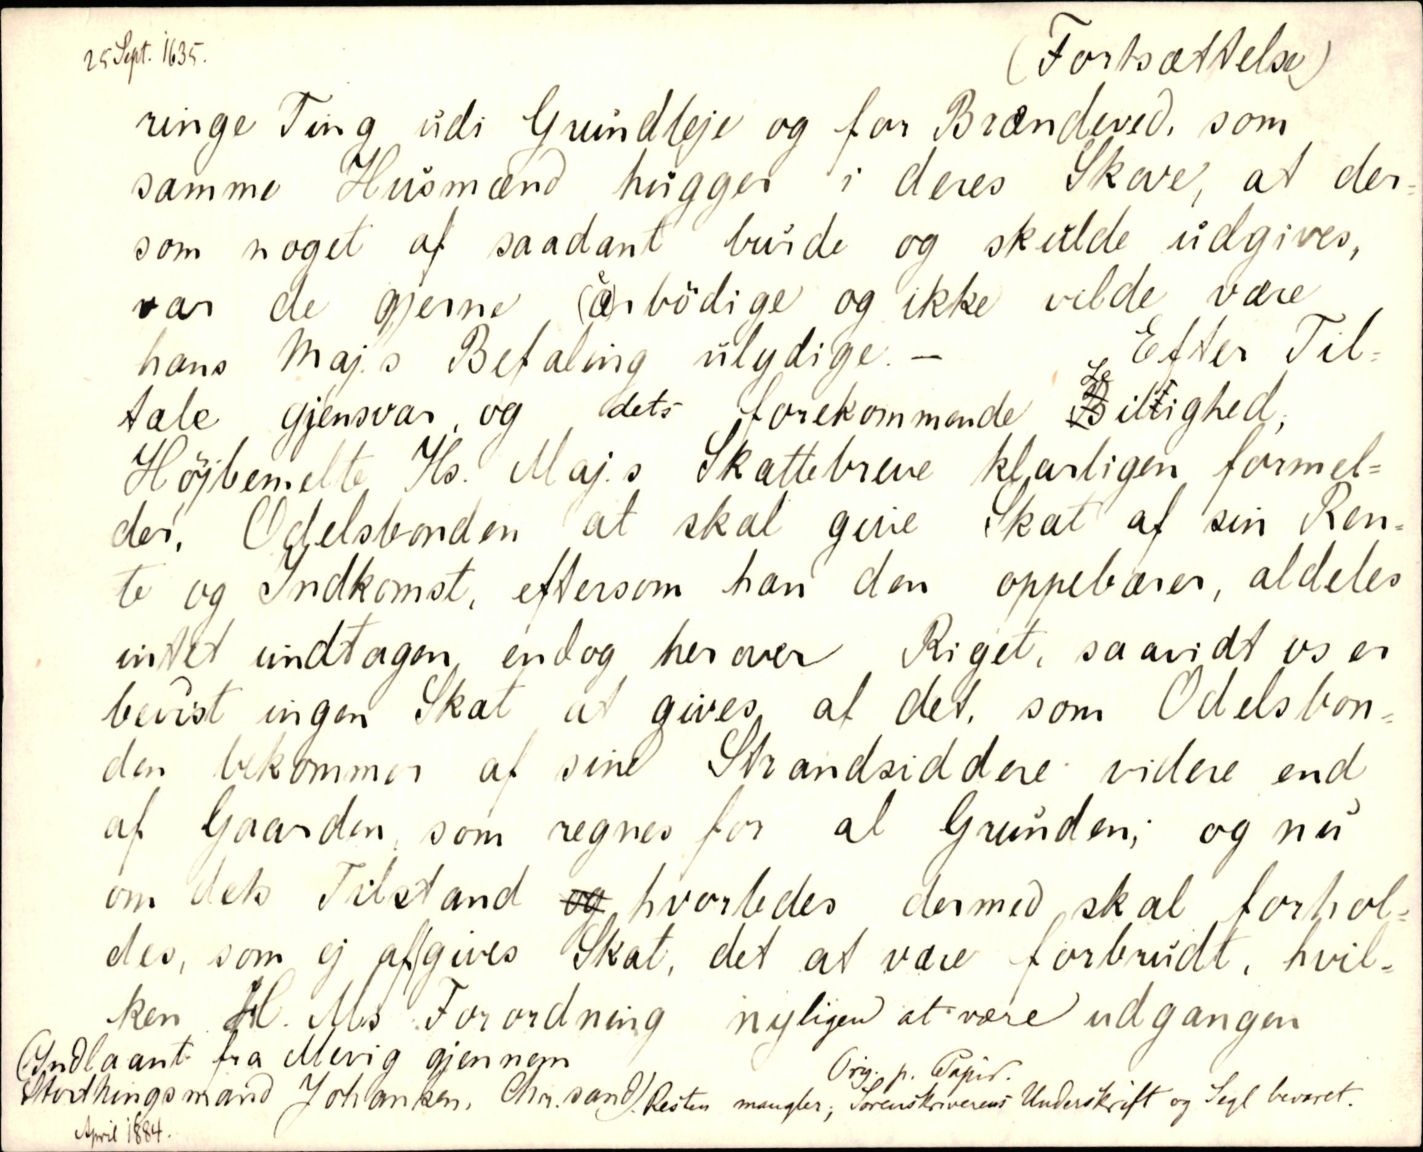 25 Sept. 1635.
(Fortsættelse)
ringe Ting udi Grundleje og for Brændeved, som
samme Husmænd hugger i deres Skove, at der=
som noget af saadant burde og skulde udgives,
var de gjerne (ærbödige og ikke vilde være
hans Maj.s Befaling ulydige. — Efter Til=
tale gjensvar, og dets forekommende Leilighed,
Höjbemelte Hs. Maj.s Skattebreve klarligen formel=
der, Odelsbonden at skal give Skat af sin Ren=
te og Indkomst, eftersom han den oppebærer, aldeles
intet undtagen, endog herover Riget, saavidt os er
bevist ingen Skat at gives af det, som Odelsbon=
den bekommer af sine Strandsiddere videre end
af Gaarden, som regnes for al Grunden; og nu
om dets Tilstand og hvorledes dermed skal forhol=
des, som ej afgives Skat, det at være forbrudt, hvil=
ken H. Ms Forordning nyligen at være udgangen
(Indlaant fra Mevig gjennem
Storthingsmand Johansen, Chr.sand)
April 1884.
Orig. p. Papir.
Resten mangler; Sorenskriverens Underskrift og Segl bevaret.